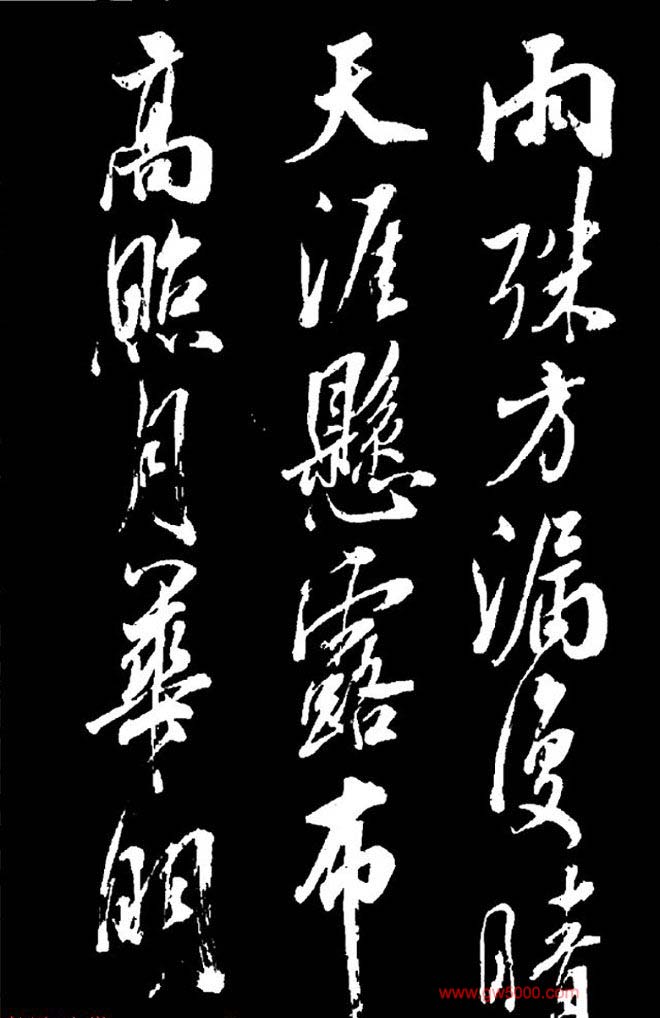 雨殊方漏復
天涯懸露布
高照月華明
www.gw5000.com